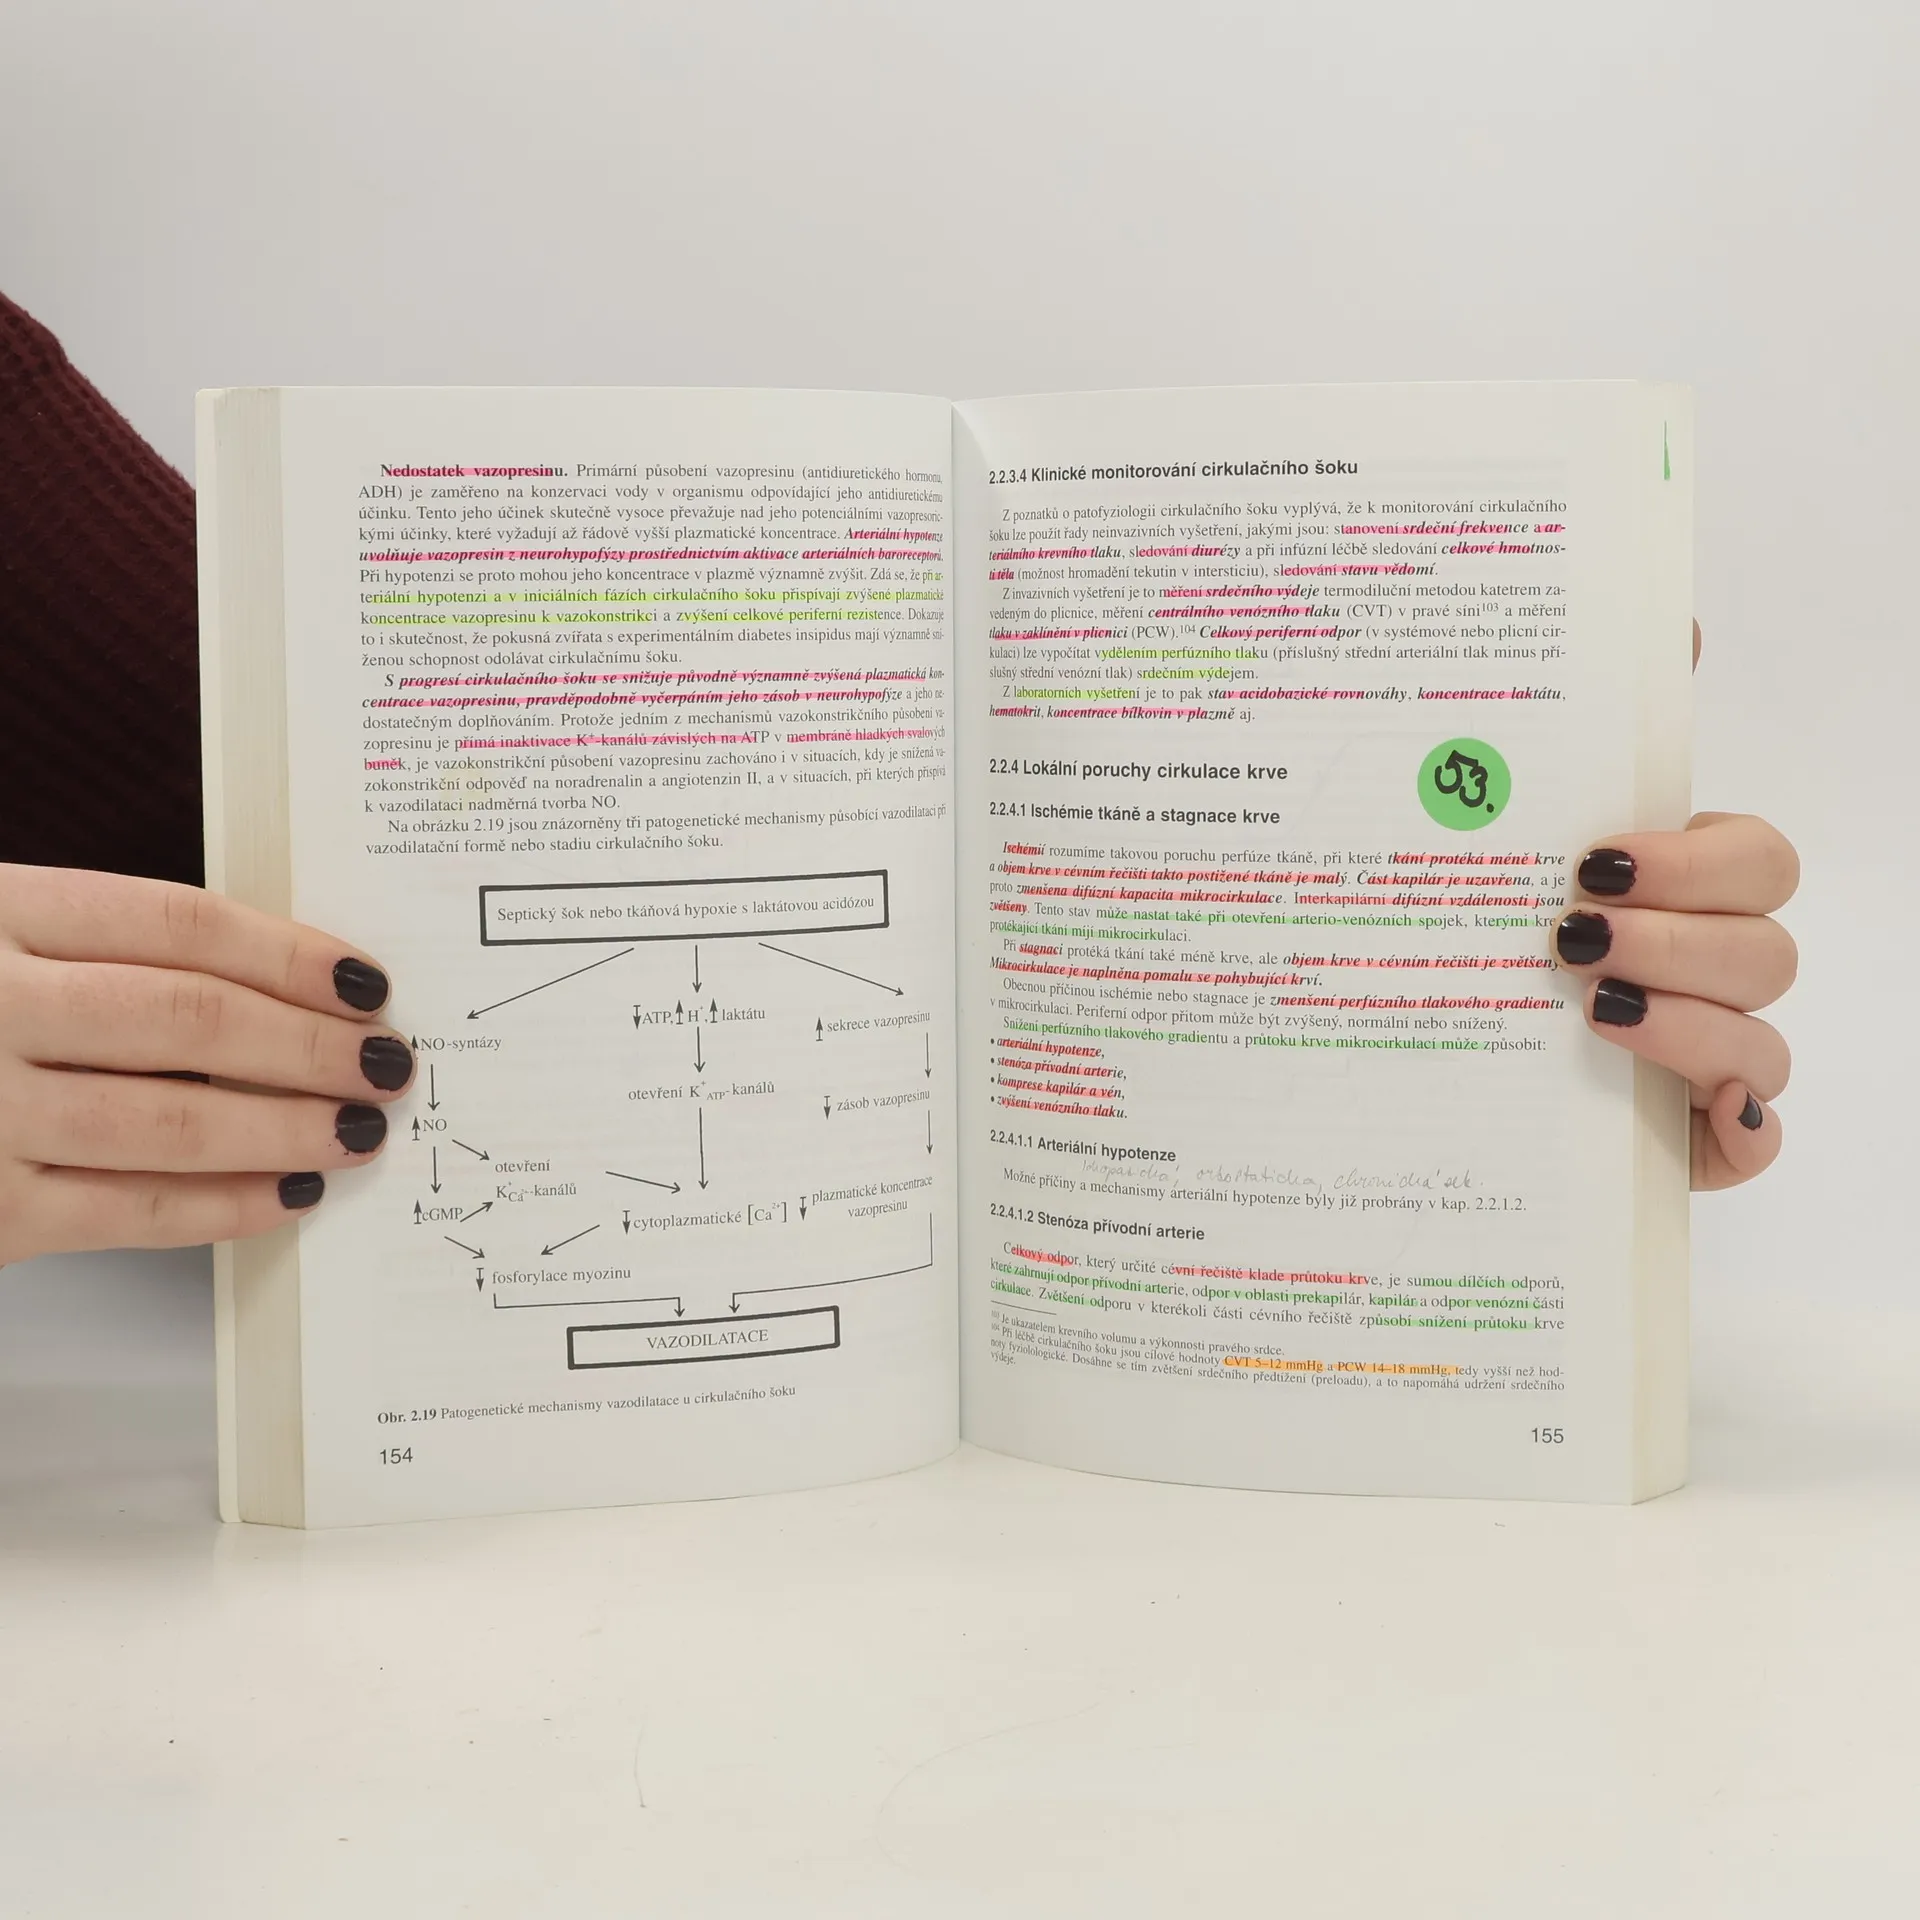 Nedostatek vazopresinu. Primární působení vazopresinu (antidiuretického hormonu,
ADH) je zaměřeno na konzervaci vody v organismu odpovídající jeho antidiuretickému
účinku. Tento jeho účinek skutečně vysoce převažuje nad jeho potenciálními vazopresoric-
kými účinky, které vyžadují až řádově vyšší plazmatické koncentrace. Arteriální hypotenze
uvolňuje vazopresin z neurohypofýzy prostřednictvím aktivace arteriálních baroreceptorů.
Při hypotenzi se proto mohou jeho koncentrace v plazmě významně zvýšit. Zdá se, že při ar-
teriální hypotenzi a v iniciálních fázích cirkulačního šoku přispívají zvýšené plazmatické
koncentrace vazopresinu k vazokonstrikci a zvýšení celkové periferní rezistence. Dokazuje
to i skutečnost, že pokusná zvířata s experimentálním diabetes insipidus mají významně sní-
ženou schopnost odolávat cirkulačnímu šoku.
S progresí cirkulačního šoku se snižuje původně významně zvýšená plazmatická kon-
centrace vazopresinu, pravděpodobně vyčerpáním jeho zásob v neurohypofýze a jeho ne-
dostatečným doplňováním. Protože jedním z mechanismů vazokonstrikčního působení va-
zopresinu je přímá inaktivace K⁺-kanálů závislých na ATP v membráně hladkých svalových
buněk, je vazokonstrikční působení vazopresinu zachováno i v situacích, kdy je snížená va-
zokonstrikční odpověď na noradrenalin a angiotenzin II, a v situacích, při kterých přispívá
k vazodilataci nadměrná tvorba NO.
Na obrázku 2.19 jsou znázorněny tři patogenetické mechanismy působící vazodilataci při
vazodilatační formě nebo stadiu cirkulačního šoku.
Septický šok nebo tkáňová hypoxie s laktátovou acidózou
↓ATP,↑H⁺,↑laktátu
↑sekrece vazopresinu
↑NO-syntázy
otevření K⁺ATP-kanálů
↓ zásob vazopresinu
↑NO
otevření
K⁺Ca²⁺-kanálů
↓ plazmatické koncentrace
vazopresinu
↑cGMP
↓cytoplazmatické [Ca²⁺]
↓ fosforylace myozinu
VAZODILATACE
Obr. 2.19 Patogenetické mechanismy vazodilatace u cirkulačního šoku
154
2.2.3.4 Klinické monitorování cirkulačního šoku
Z poznatků o patofyziologii cirkulačního šoku vyplývá, že k monitorování cirkulačního
šoku lze použít řady neinvazivních vyšetření, jakými jsou: stanovení srdeční frekvence a ar-
teriálního krevního tlaku, sledování diurézy a při infúzní léčbě sledování celkové hmotnos-
ti těla (možnost hromadění tekutin v intersticiu), sledování stavu vědomí.
Z invazivních vyšetření je to měření srdečního výdeje termodiluční metodou katetrem za-
vedeným do plicnice, měření centrálního venózního tlaku (CVT) v pravé síni¹⁰³ a měření
tlaku v zaklínění v plicnici (PCW).¹⁰⁴ Celkový periferní odpor (v systémové nebo plicní cir-
kulaci) lze vypočítat vydělením perfúzního tlaku (příslušný střední arteriální tlak minus pří-
slušný střední venózní tlak) srdečním výdejem.
Z laboratorních vyšetření je to pak stav acidobazické rovnováhy, koncentrace laktátu,
hematokrit, koncentrace bílkovin v plazmě aj.
2.2.4 Lokální poruchy cirkulace krve
53.
2.2.4.1 Ischémie tkáně a stagnace krve
Ischémií rozumíme takovou poruchu perfúze tkáně, při které tkání protéká méně krve
a objem krve v cévním řečišti takto postižené tkáně je malý. Část kapilár je uzavřena, a je
proto zmenšena difúzní kapacita mikrocirkulace. Interkapilární difúzní vzdálenosti jsou
zvětšeny. Tento stav může nastat také při otevření arterio-venózních spojek, kterými kre
protékající tkání míjí mikrocirkulaci.
Při stagnaci protéká tkání také méně krve, ale objem krve v cévním řečišti je zvětšený.
Mikrocirkulace je naplněna pomalu se pohybující krví.
Obecnou příčinou ischémie nebo stagnace je zmenšení perfúzního tlakového gradientu
v mikrocirkulaci. Periferní odpor přitom může být zvýšený, normální nebo snížený.
Snížení perfúzního tlakového gradientu a průtoku krve mikrocirkulací může způsobit:
• arteriální hypotenze,
• stenóza přívodní arterie,
• komprese kapilár a vén,
• zvýšení venózního tlaku.
2.2.4.1.1 Arteriální hypotenze
idiopatická, ortostatická, chronická sek.
Možné příčiny a mechanismy arteriální hypotenze byly již probrány v kap. 2.2.1.2.
2.2.4.1.2 Stenóza přívodní arterie
Celkový odpor, který určité cévní řečiště klade průtoku krve, je sumou dílčích odporů,
které zahrnují odpor přívodní arterie, odpor v oblasti prekapilár, kapilár a odpor venózní části
cirkulace. Zvětšení odporu v kterékoli části cévního řečiště způsobí snížení průtoku krve
¹⁰³ Je ukazatelem krevního volumu a výkonnosti pravého srdce.
¹⁰⁴ Při léčbě cirkulačního šoku jsou cílové hodnoty CVT 5–12 mmHg a PCW 14–18 mmHg, tedy vyšší než hod-
noty fyziolologické. Dosáhne se tím zvětšení srdečního předtížení (preloadu), a to napomáhá udržení srdečního
výdeje.
155